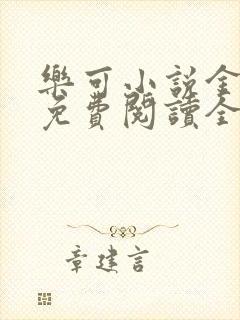 樂可小說全
免費閱讀全
章建言